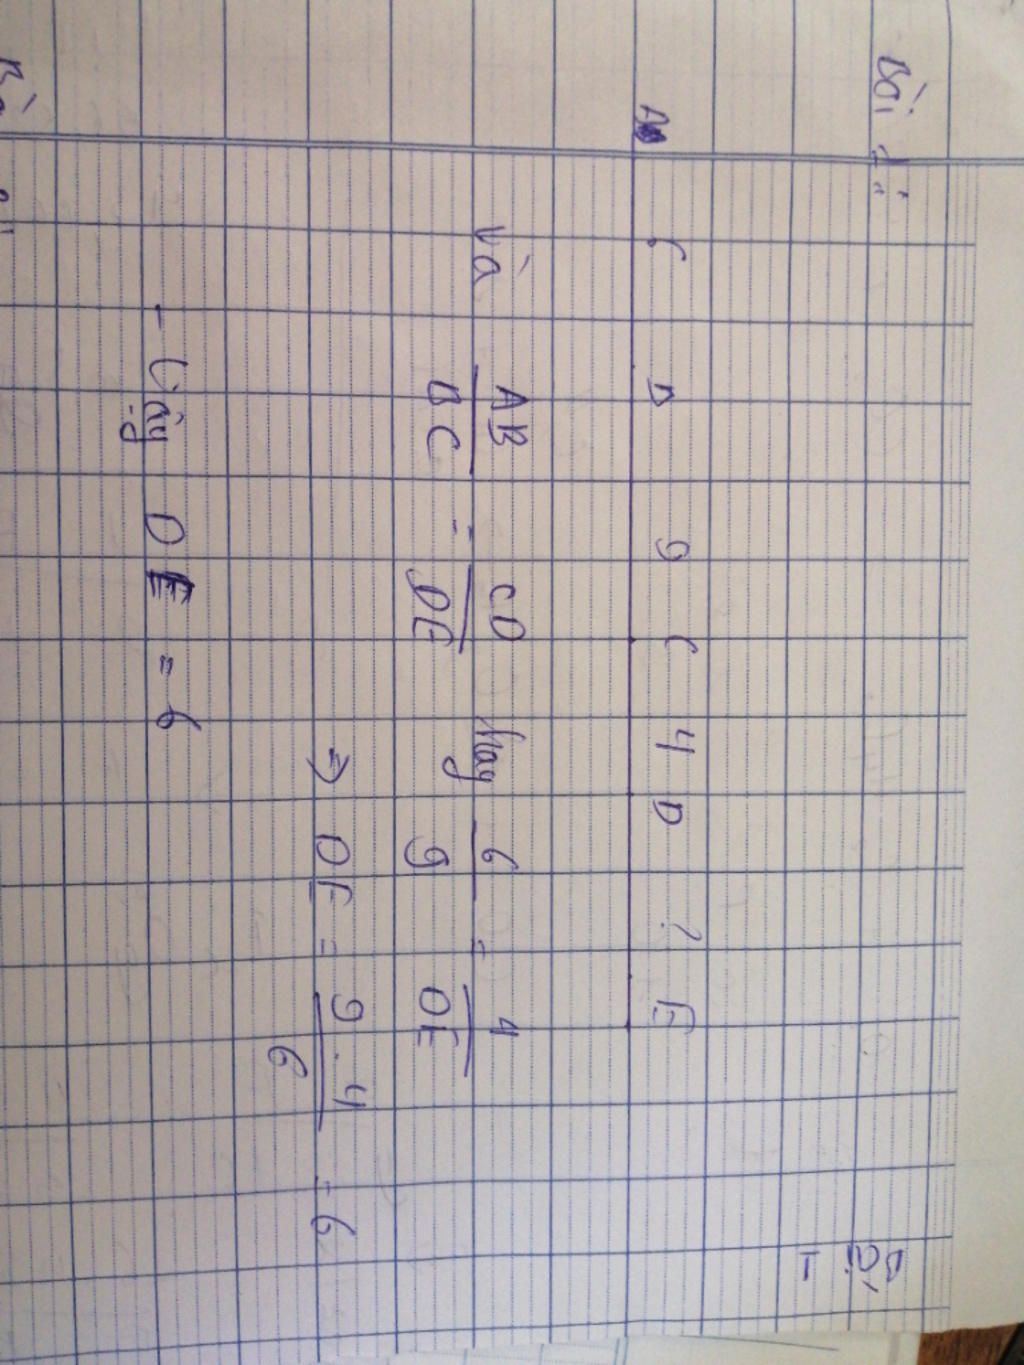 Bài 1:
Bài 1
A 6 B 9 C 4 D ? E
Và AB/BC = CD/DE hay 6/9 = 4/DE
→ DE = 9.4/6 = 6
- Vậy DE = 6
Bà